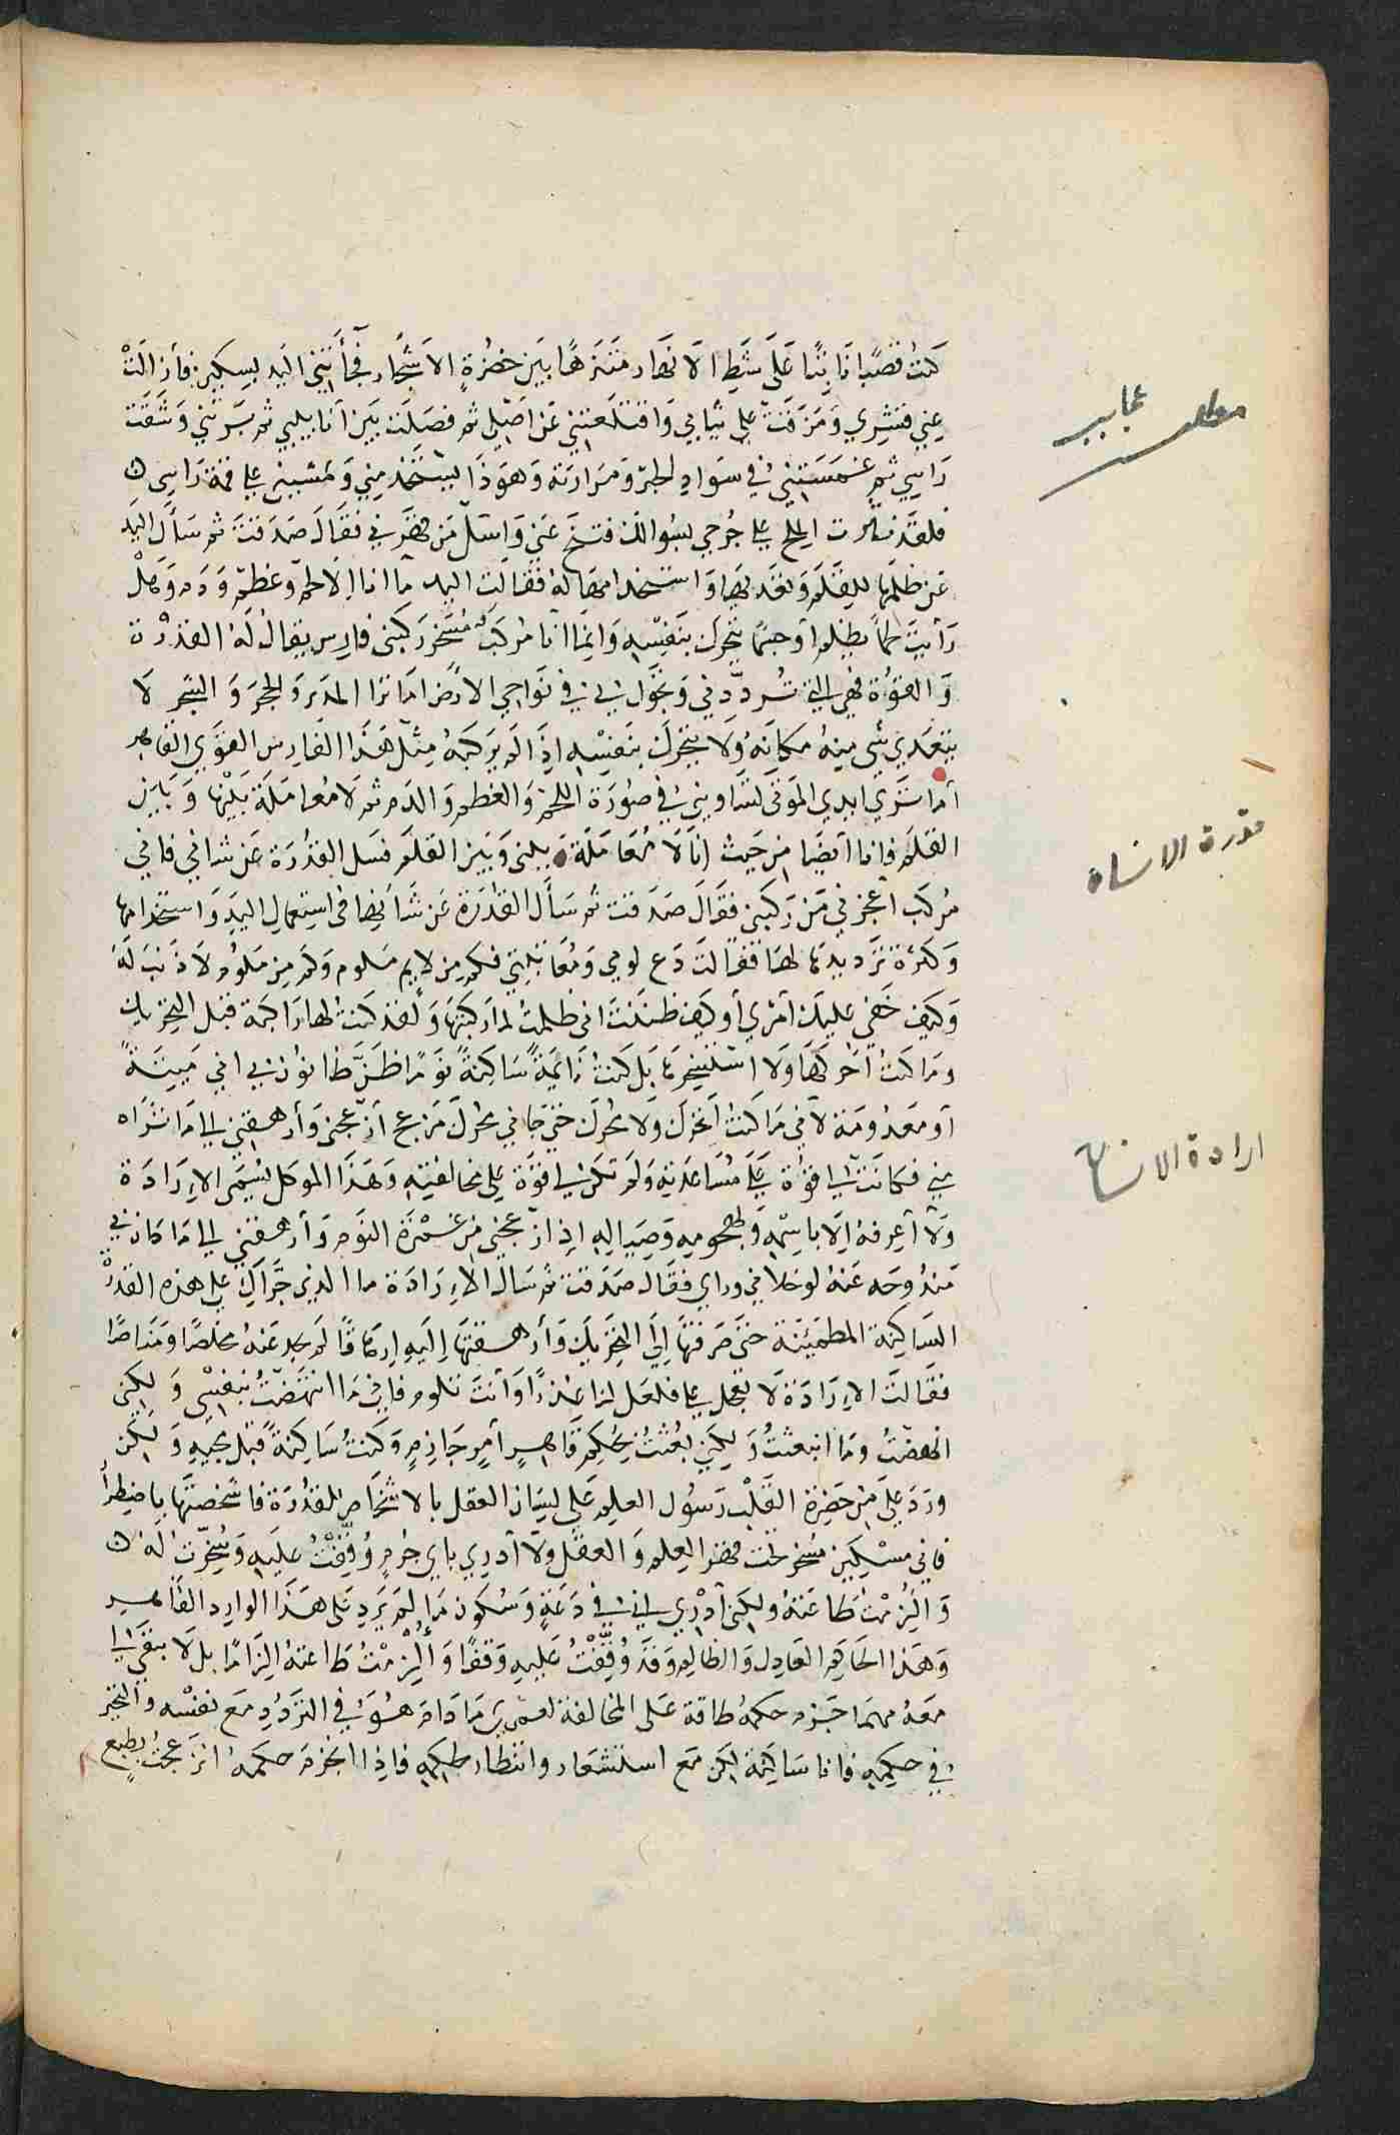 كنت قصبا نابتا على شط الانهار متنزها بين خضرة الاشجار فجأتني اليد بسكين فازالت
عني قشري ومزقت علي ثيابي واقتلعتني عن اصلي ثم فصلت بين انابيبي ثم برتني وشقت
راسي ثم غمستني في سواد الحبر ومرارته وهو ذا يستخدمني ويمشيني على قمة راسي
فلقد نثرت الملح على جرحي بسوالك فتنح عني واسئل من قهرني فقال صدقت ثم سأل اليد
عن ظلمها للقلم وتعديها واستخدامها له فقالت اليد ما انا الا لحم وعظم ودم وهل
رأيت لحما يظلم او جسما يتحرك بنفسه وانما انا مركب مسخر ركبني فارس يقال له القدرة
والقوة فهي التي ترددني وتجول بي في نواحي الارض اما ترا المدر والحجر والشجر لا
يتعدي شي منه مكانه ولا يتحرك بنفسه اذ لم يركبه مثل هذا الفارس القوي القاهر
اما تري ايدي الموتى تساويني في صورة اللحم والعظم والدم ثم لا معاملة بينها وبين
القلم فانا ايضا من حيث انا لا معاملة بيني وبين القلم فسل القدرة عن شاني فاني
مركب ازعجني من ركبني فقال صدقت ثم سأل القدرة عن شانها في استعمال اليد واستخدامها
وكثرة ترديدها لها فقالت دع لومي ومعاتبتي فكم من لايم ملوم وكم من ملوم لا ذنب له
وكيف خفي عليك امري او كيف ظننت اني ظلمت لما ركبتها ولقد كنت لها راكبة قبل التحريك
وما كنت احركها ولا استسخرها بل كنت نائمة ساكنة نوما ظن ظانون بي اني ميتة
او معدومة لاني ما كنت اتحرك ولا احرك حتى جاني محرك ازعجني وأرهقني الى ما تراه
مني فكانت لي قوة على مساعدته ولم تكن لي قوة على مخالفته وهذا الموكل يسمى الارادة
ولا اعرفه الا باسمه وهجومه وصياله اذ ازعجني من غمرة النوم وأرهقني الى ما كان لي
مندوحة عنه لو خلاني ورايي فقال صدقت ثم سال الارادة ما الذي جرأك على هذه القدرة
الساكنة المطمئنة حتى صرفتها الى التحريك وأرهقتها اليه ارهاقا لم تجد عنه مخلصا ومناصا
فقالت الارادة لا تعجل علي فلعل لنا عذرا وأنت تلوم فاني ما انتهضت بنفسي ولكني
انهضت وما انبعثت ولكني بعثت بحكم قاهر أمر جازم وكنت ساكنة قبل مجيه ولكن
ورد علي من حضرة القلب رسول العلم على لسان العقل بالاشخاص للقدرة فاشخصتها باضطرار
فاني مسكين مسخر تحت قهر العلم والعقل ولا ادري باي جرم وقفت عليه وسخرت له
والزمت طاعته ولكني ادري اني في دعة وسكون ما لم يرد علي هذا الوارد القاهر
وهذا الحاكم العادل والظالم وقد وقفت عليه وقفا وألزمت طاعته الزاما بل لا يبقى لي
معه مهما جزم حكمه طاقة على المخالفة لعمري ما دام هو في التردد مع نفسه والتحير
في حكمه فانا ساكنة لكن مع استشعار وانتظار لحكمه فاذا انجزم حكمه انزعجت بطبع
مطلب عجايب
قدرة الانسان
ارادة الانسان